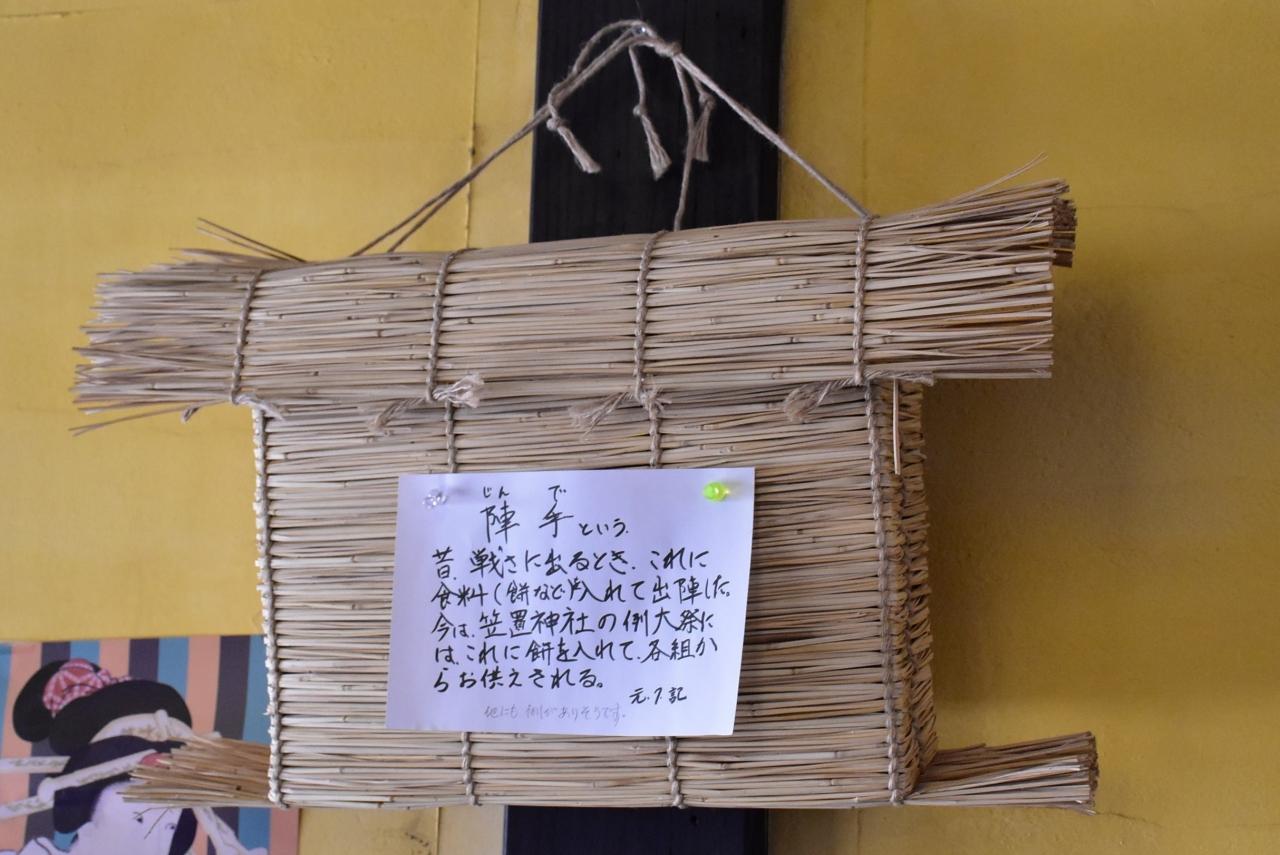 じん で
陣 手 という.
昔、戦さに出るとき、これに
食料(餅など)入れて出陣した。
今は、笠置神社の例大祭に
は、これに餅を入れて、各組か
らお供えされる。
元.7.記
他にも例がありそうです。